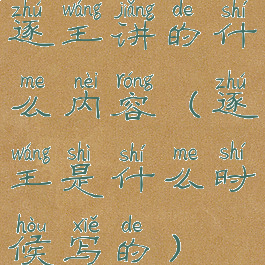 zhú wáng jiǎng de shí
逐王讲的什
me nèi róng zhú
么内容（逐
wáng shì shí me shí
王是什么时
hòu xiě de
候写的）